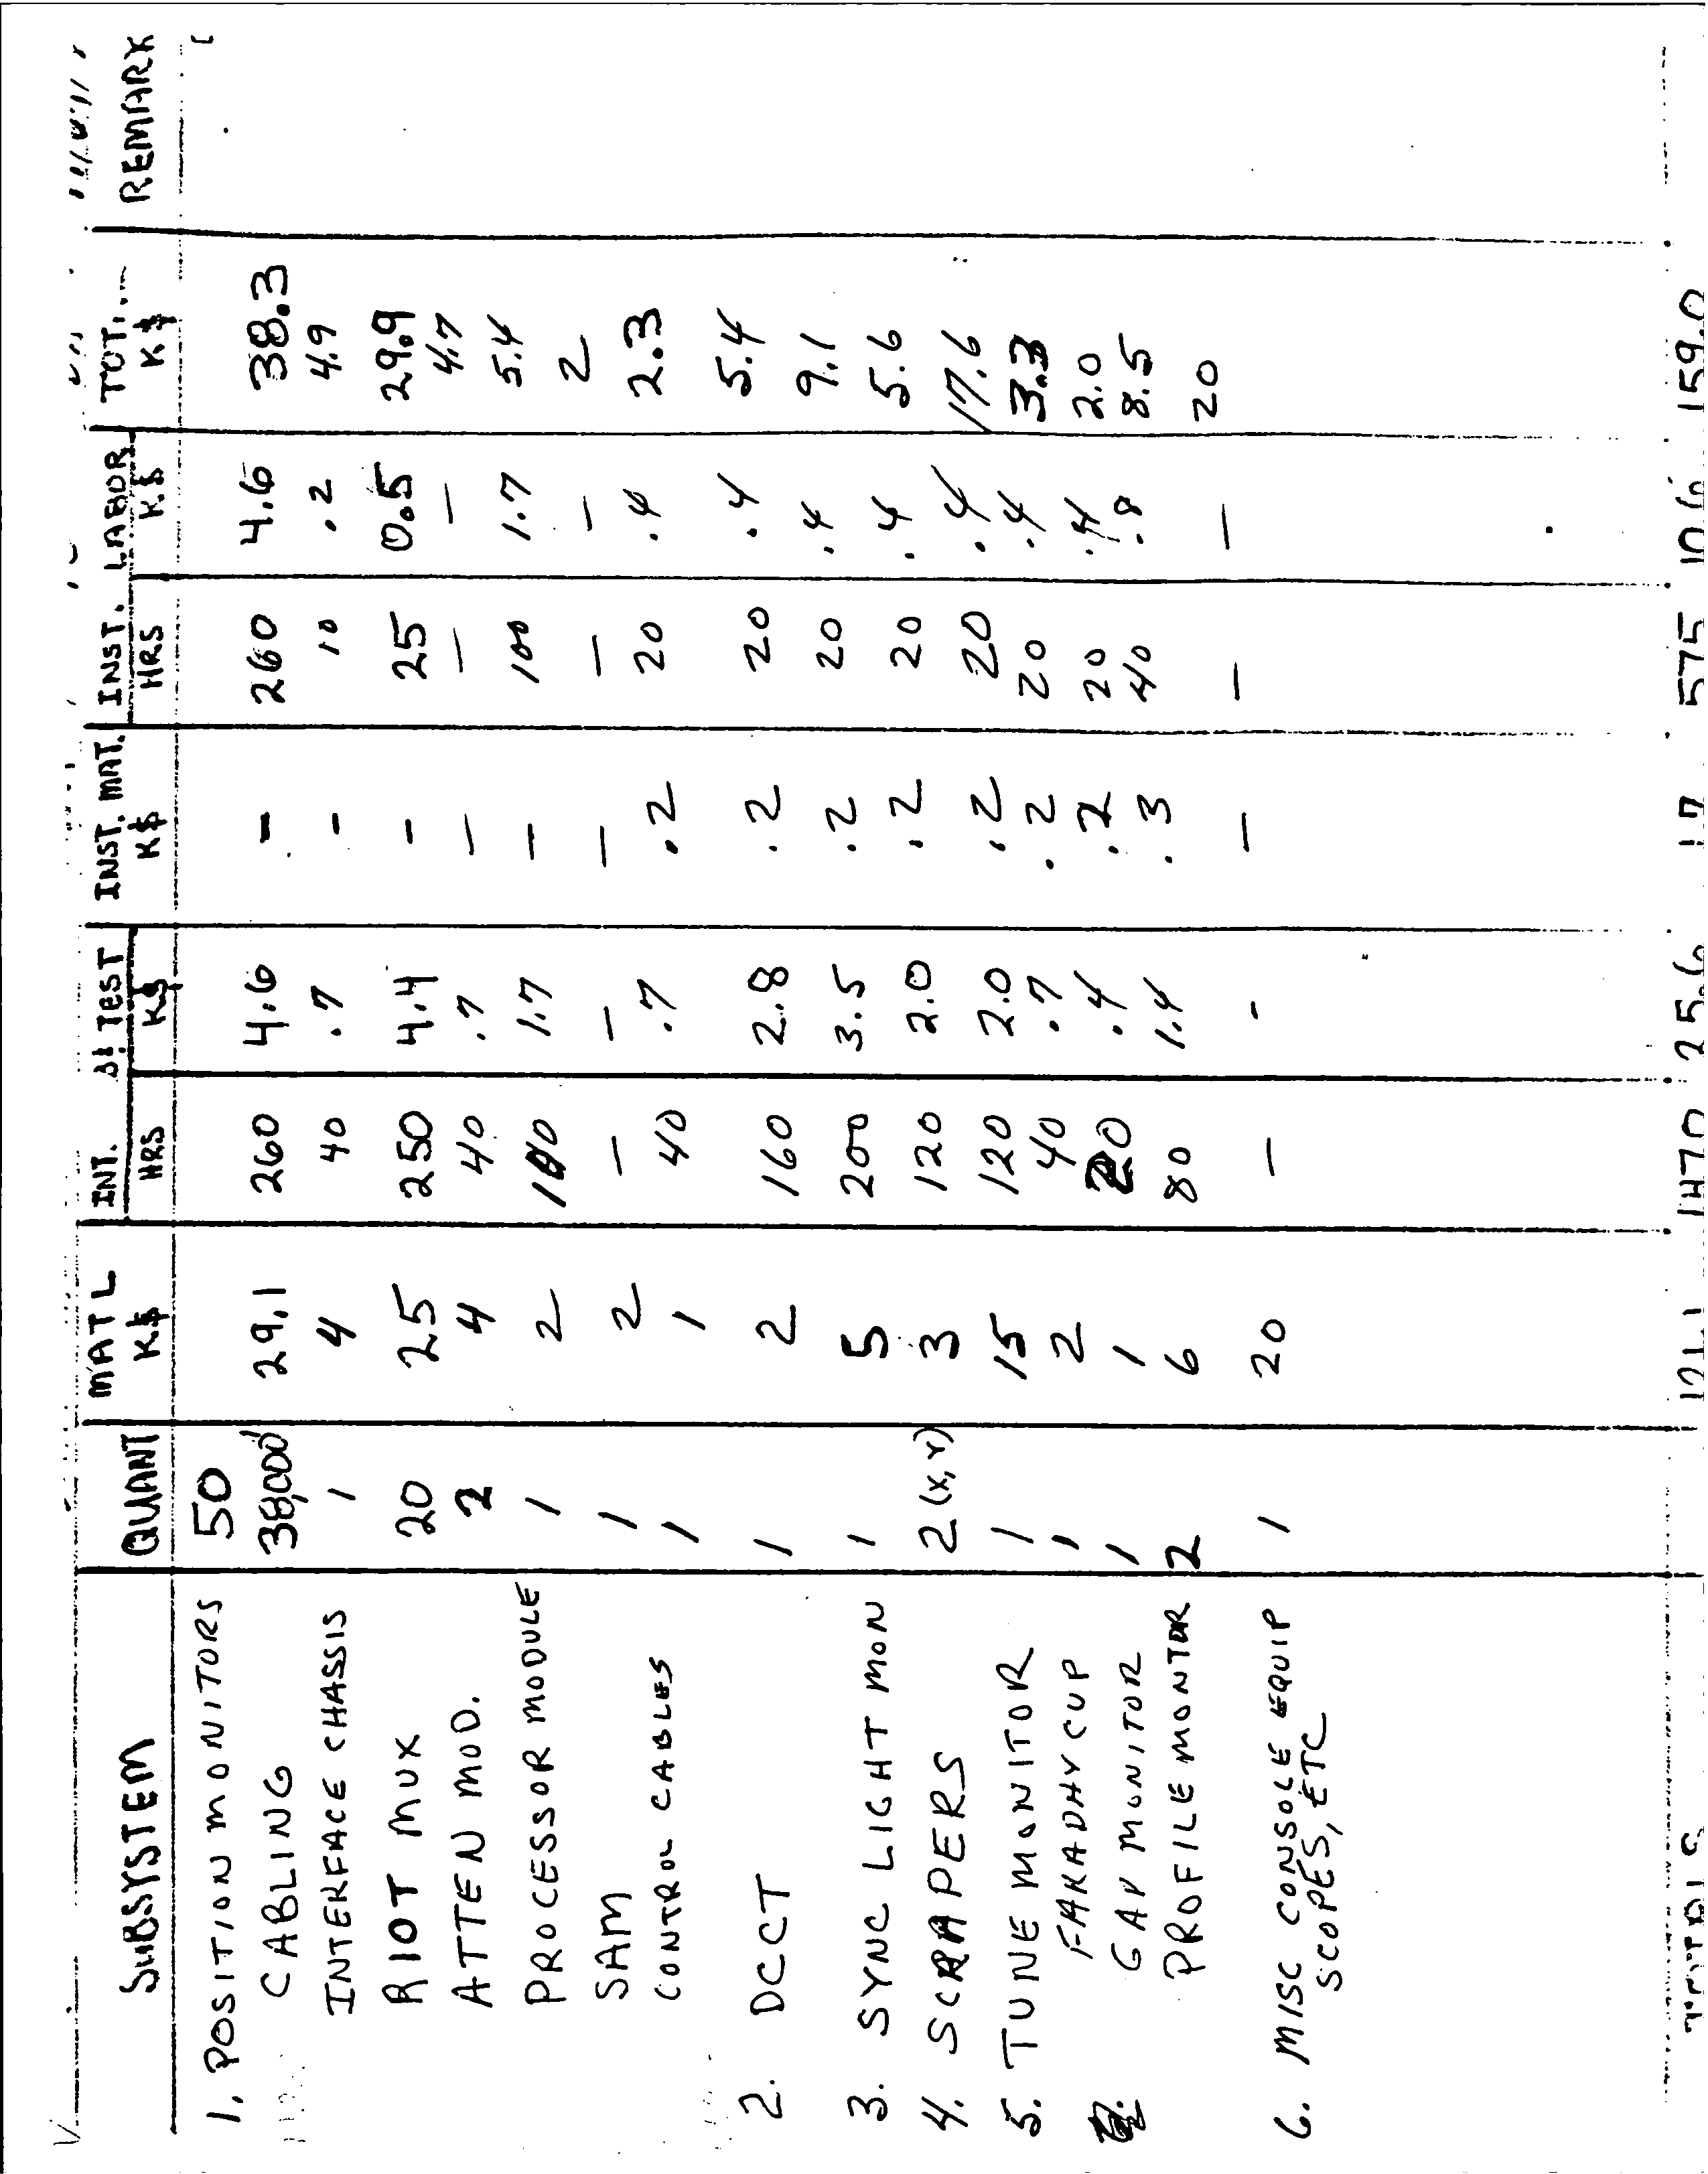 SUBSYSTEM QUANT MAT'L K$ INT. & TEST HRS K$ INST. MAT. K$ INST. LABOR HRS K$ TOT. K$ REMARK
1. POSITION MONITORS 50
CABLING 38,000' 29.1 260 4.6 - 260 4.6 38.3
INTERFACE CHASSIS 1 4 40 .7 - 10 .2 4.9
RIOT MUX 20 25 250 4.4 - 25 0.5 29.9
ATTEN MOD. 2 4 40 .7 - - - 4.7
PROCESSOR MODULE 1 2 100 1.7 - 100 1.7 5.4
SAM 1 2 - - - - - 2
CONTROL CABLES 1 1 40 .7 .2 20 .4 2.3
2. DCCT 1 2 160 2.8 .2 20 .4 5.4
3. SYNC LIGHT MON 1 5 200 3.5 .2 20 .4 9.1
4. SCRAPERS 2 (X,Y) 3 120 2.0 .2 20 .4 5.6
5. TUNE MONITOR 1 15 120 2.0 .2 20 .4 17.6
FARADAY CUP 1 2 40 .7 .2 20 .4 3.3
GAP MONITOR 1 1 20 .4 .2 20 .4 2.0
PROFILE MONITOR 2 6 80 1.4 .3 40 .8 8.5
6. MISC CONSOLE EQUIP 1 20 - - - - - 20
SCOPES, ETC
TOTALS 121.1 1470 25.6 1.7 575 10.6 159.0